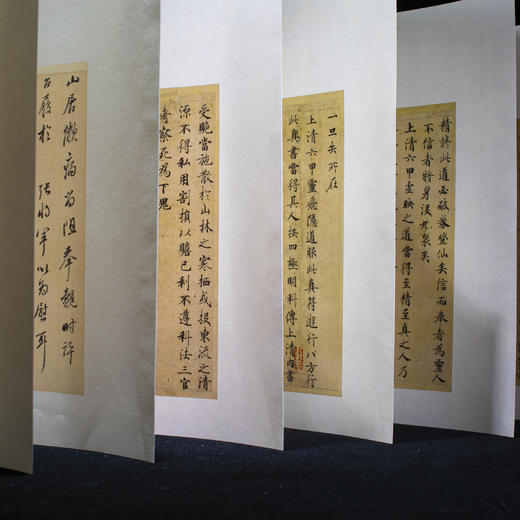 精修此道必破券登仙矣信而奉者為靈人
不信者將身没九泉矣
上清六甲虛映之道當得至精至真之人乃
一旦失所在
上清六甲靈飛隱道服此真符遊行八方行
此真書當得其人按四極明科傳上清内書
受賧當施散於山林之寒栖或投東流之清
源不得私用割損以贍己利不遵科法三官
考察死為下鬼
山居懶病阻奉觀時許
履於 以為慰耳